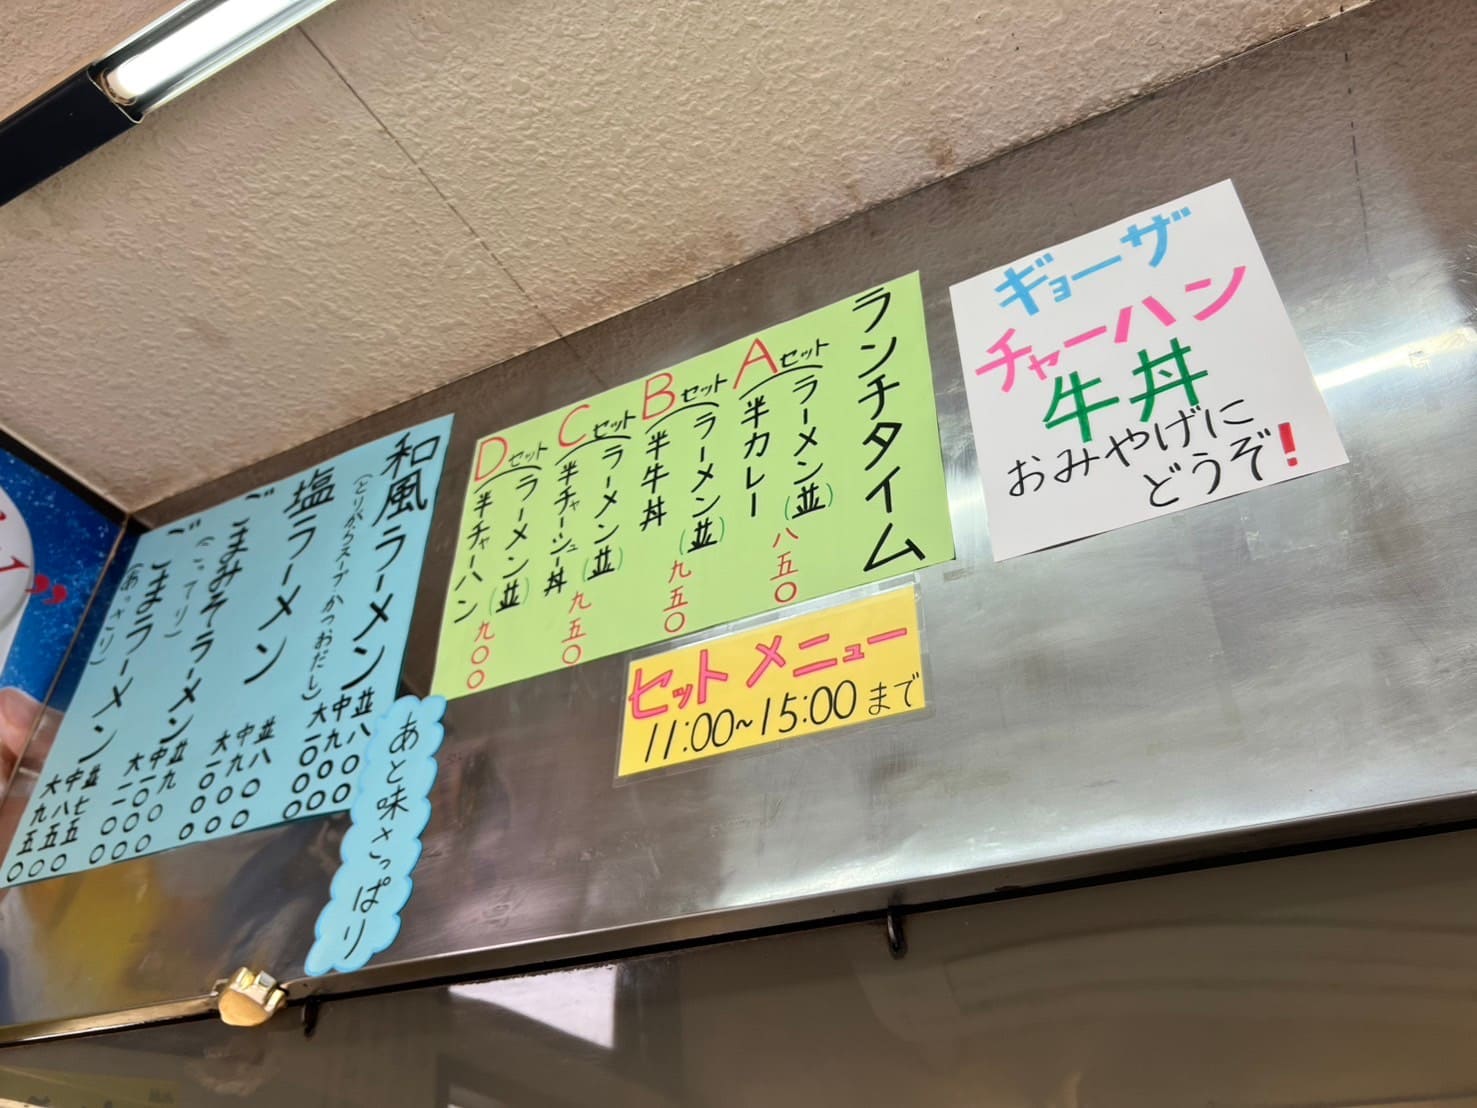 ギョーザ
チャーハン
牛丼
おみやげに
どうぞ!
ランチタイム
Aセット
ラーメン(並)
半カレー
八五〇
Bセット
ラーメン(並)
半牛丼
九五〇
Cセット
ラーメン(並)
半チャーシュー丼
九五〇
Dセット
ラーメン(並)
半チャーハン
九〇〇
セットメニュー
11:00~15:00まで
和風ラーメン
(とりがらスープ・かつおだし)
並八〇〇
中九〇〇
大一〇〇〇
塩ラーメン
並八〇〇
中九〇〇
大一〇〇〇
ごまみそラーメン
(こってり)
並九〇〇
中一〇〇〇
大一一〇〇
ごまラーメン
(あっさり)
並七五〇
中八五〇
大九五〇
あと味さっぱり